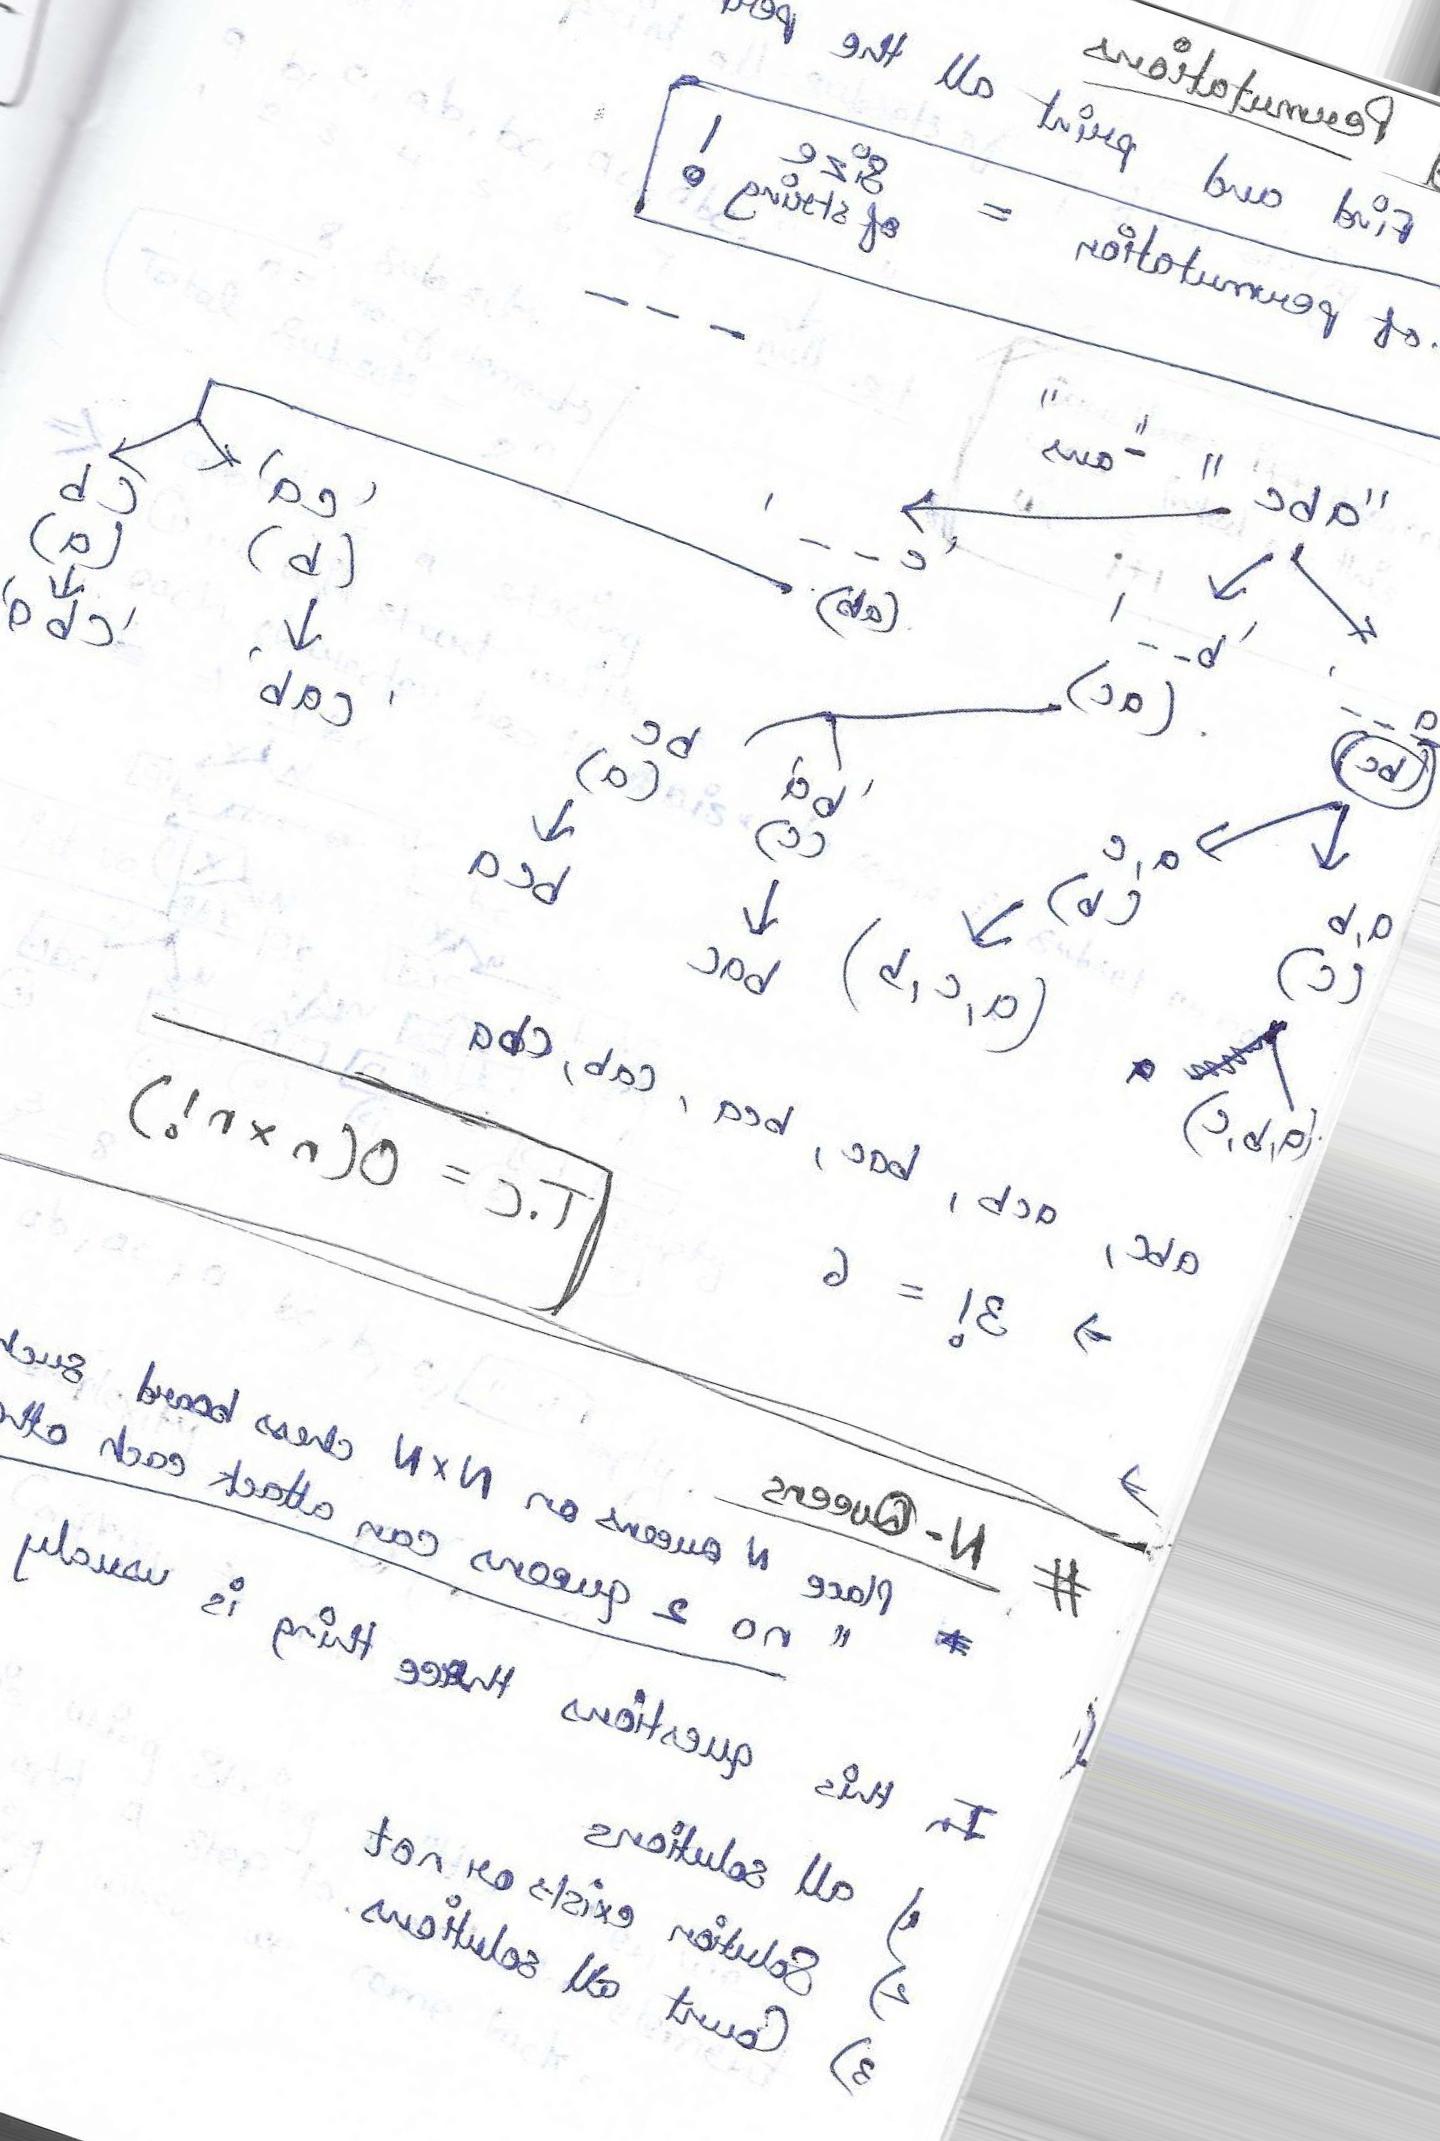 Permutations
Find and print all the
. of permutation = size of string !
_ _ _
"abc" - ans " "
'a _ _ ' 'b _ _ ' 'c _ _ '
(bc) (ac) (ab)
a,b a,c 'ba' bc 'ca' cb
(c) (b) (c) (a) (b) (a)
(a,b,c) (a,c,b) bac bca 'cab' 'cba'
abc, acb, bac, bca, cab, cba
→ 3! = 6
T.C = O(n×n!)
# N-Queens
* Place N Queens on N×N chess board such
" no 2 queens can attack each
In this questions three thing is usually
1) all solutions
2) Solution exists or not
3) Count all solutions.